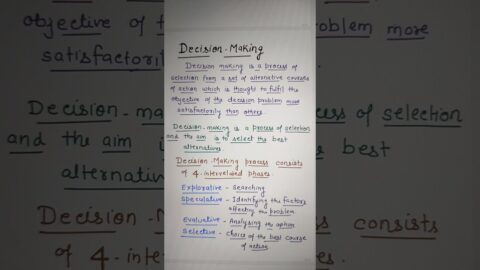 Decision-Making
Decision making is a process of
selection from a set of alternative courses
of action which is thought to fulfil the
objective of the decision problem more
satisfactorily than others.
Decision-making is a process of selection
and the aim is to select the best
alternative
Decision-Making process consists
of 4-interrelated phases.
Explorative - Searching
Speculative - Identifying the factors
affecting the problem
Evaluative - Analysing the option
Selective - Choice of the best course
of action